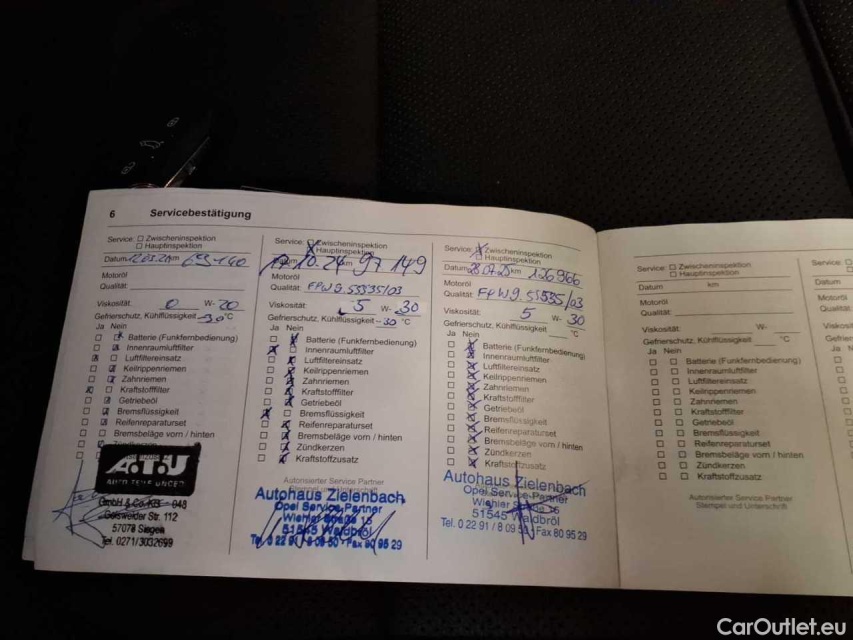 6 Servicebestätigung
Service: Zwischeninspektion
Hauptinspektion
Datum km
Motoröl
Qualität:
Viskosität: 0 W- 20
Gefrierschutz, Kühlflüssigkeit -30 °C
Ja Nein
Batterie (Funkfernbedienung)
Innenraumluftfilter
Luftfiltereinsatz
Keilrippenriemen
Zahnriemen
Kraftstofffilter
Getriebeöl
Bremsflüssigkeit
Reifenreparaturset
Bremsbeläge vorn / hinten
Zündkerzen
A.T.U
AUTO TEILE UNGER
GmbH & Co. KG 048
Geisweider Str. 112
57078 Siegen
Tel. 0271/3032699
Service: Zwischeninspektion
Hauptinspektion
Datum 10.24 97 149
Motoröl
Qualität: FPW9.55535/03
Viskosität: 5 W- 30
Gefrierschutz, Kühlflüssigkeit -30 °C
Ja Nein
Batterie (Funkfernbedienung)
Innenraumluftfilter
Luftfiltereinsatz
Keilrippenriemen
Zahnriemen
Kraftstofffilter
Getriebeöl
Bremsflüssigkeit
Reifenreparaturset
Bremsbeläge vorn / hinten
Zündkerzen
Kraftstoffzusatz
Autorisierter Service Partner
Stempel und Unterschrift
Autohaus Zielenbach
Opel Service Partner
Wiehler Straße 15
51545 Waldbröl
Tel. 0 22 91 / 8 09 50 · Fax 80 95 29
Service: Zwischeninspektion
Hauptinspektion
Datum 28.07.25 km 126966
Motoröl
Qualität: FPW9.55535/03
Viskosität: 5 W- 30
Gefrierschutz, Kühlflüssigkeit °C
Ja Nein
Batterie (Funkfernbedienung)
Innenraumluftfilter
Luftfiltereinsatz
Keilrippenriemen
Zahnriemen
Kraftstofffilter
Getriebeöl
Bremsflüssigkeit
Reifenreparaturset
Bremsbeläge vorn / hinten
Zündkerzen
Kraftstoffzusatz
Autohaus Zielenbach
Opel Service Partner
Wiehler Straße 15
51545 Waldbröl
Tel. 0 22 91 / 8 09 Fax 80 95 29
Service: Zwischeninspektion
Hauptinspektion
Datum km
Motoröl
Qualität:
Viskosität: W-
Gefrierschutz, Kühlflüssigkeit °C
Ja Nein
Batterie (Funkfernbedienung)
Innenraumluftfilter
Luftfiltereinsatz
Keilrippenriemen
Zahnriemen
Kraftstofffilter
Getriebeöl
Bremsflüssigkeit
Reifenreparaturset
Bremsbeläge vorn / hinten
Zündkerzen
Kraftstoffzusatz
Autorisierter Service Partner
Stempel und Unterschrift
Service:
Datum
Motoröl
Qualität
Ja
CarOutlet.eu